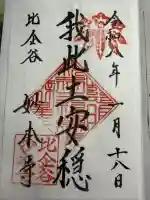 令和八年一月十八日
我此土安穏
比企谷
妙本寺
比企谷